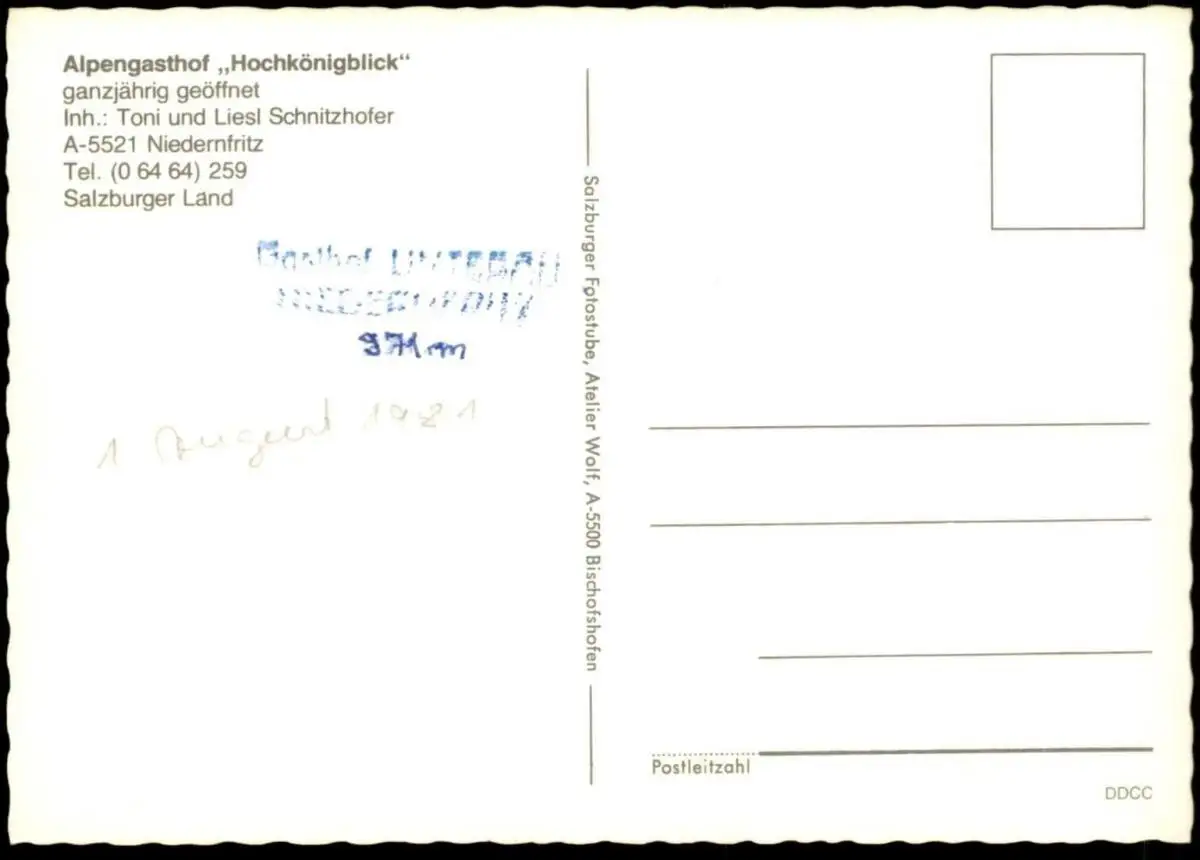 Alpengasthof „Hochkönigblick“
ganzjährig geöffnet
Inh.: Toni und Liesl Schnitzhofer
A-5521 Niedernfritz
Tel. (0 64 64) 259
Salzburger Land
Gasthof UNTERAU
NIEDERNFRITZ
971 m
1 August 1981
Salzburger Fotostube, Atelier Wolf, A-5500 Bischofshofen
Postleitzahl
DDCC